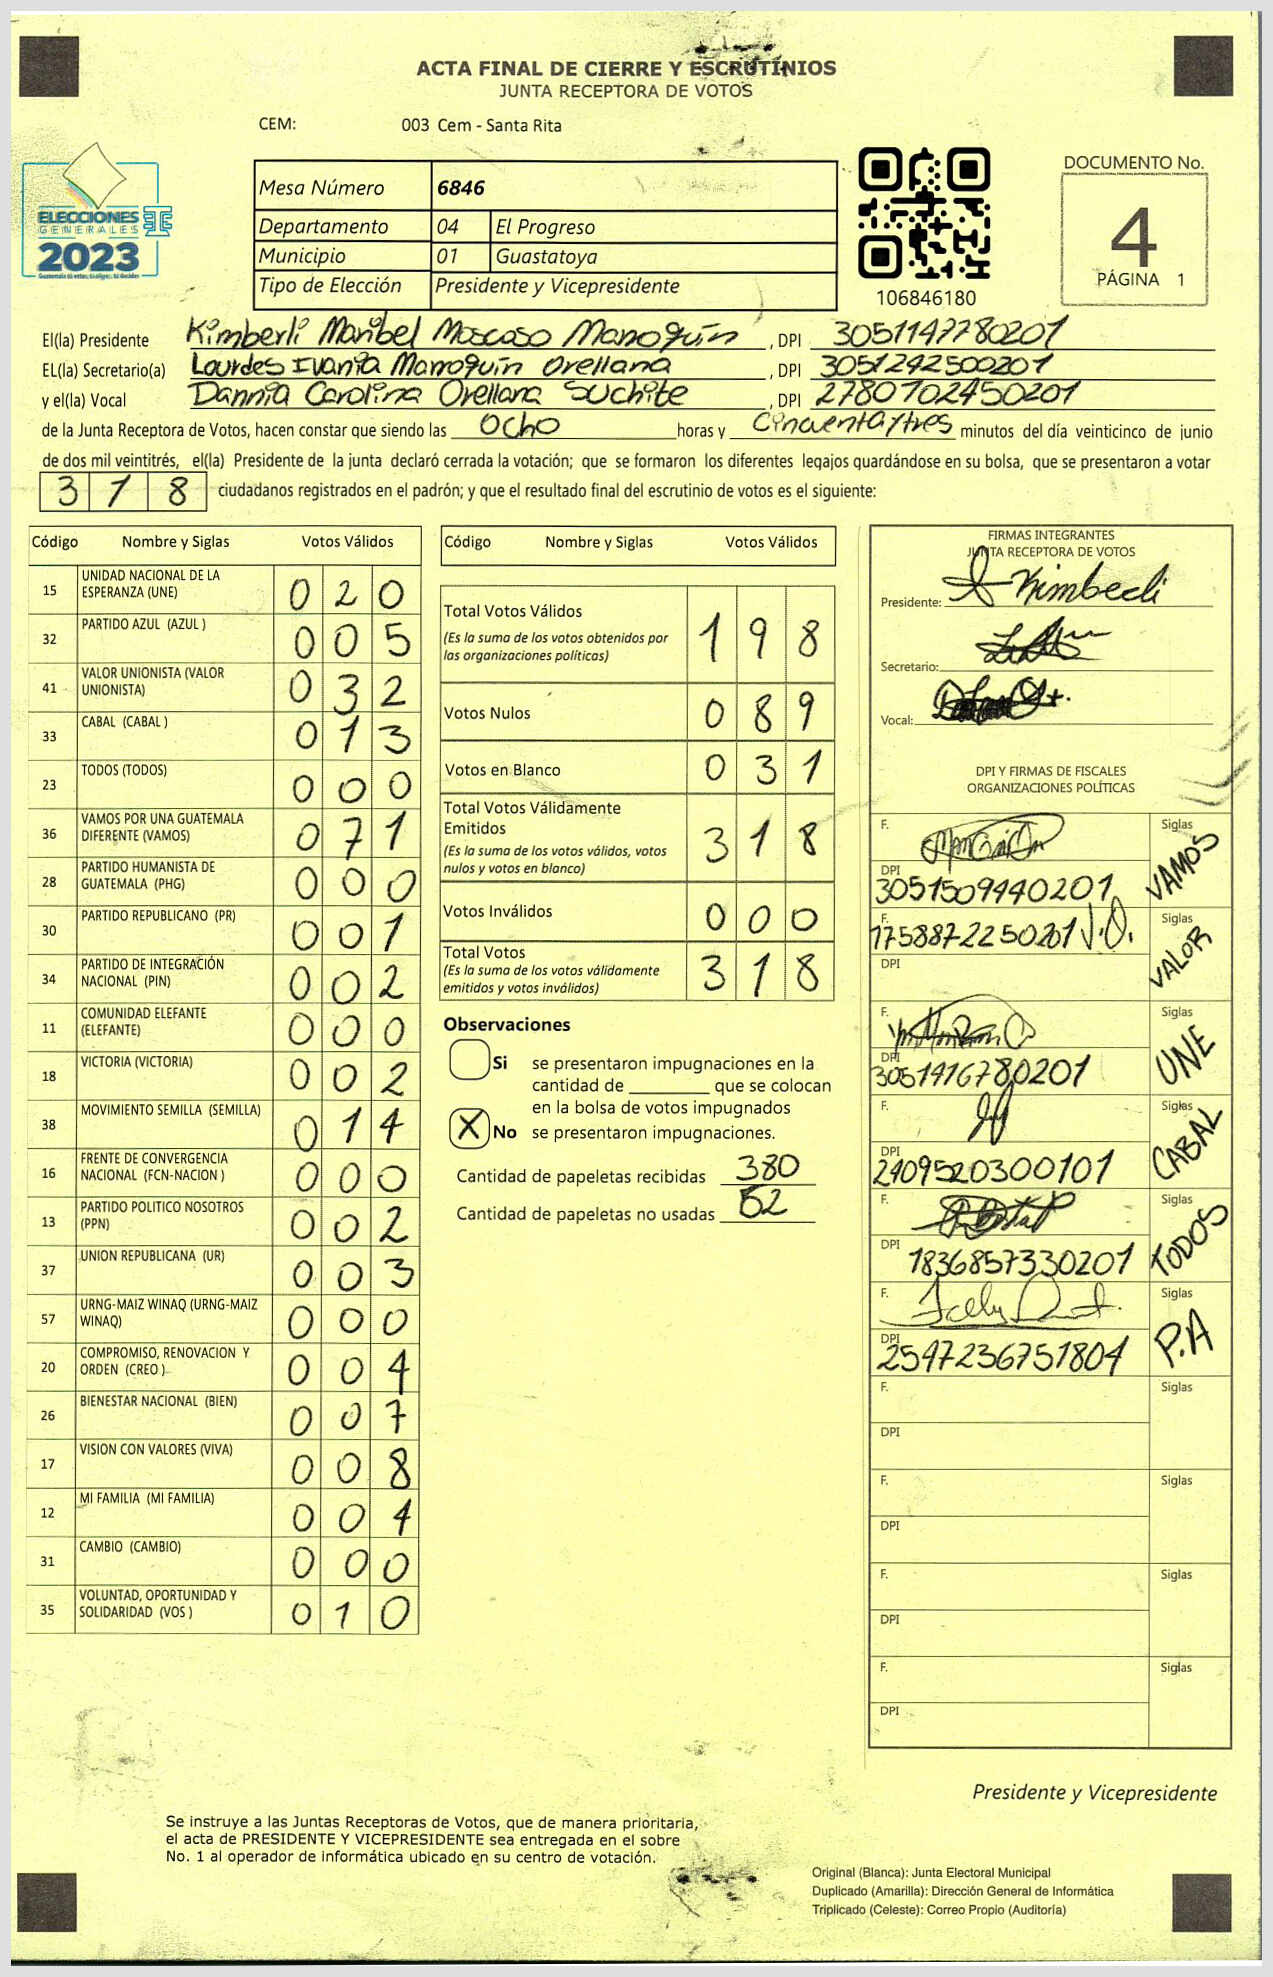 ACTA FINAL DE CIERRE Y ESCRUTINIOS
JUNTA RECEPTORA DE VOTOS
CEM: 003 Cem - Santa Rita
ELECCIONES
GENERALES
2023
Mesa Número 6846
Departamento 04 El Progreso
Municipio 01 Guastatoya
Tipo de Elección Presidente y Vicepresidente
106846180
DOCUMENTO No.
4
PÁGINA 1
El(la) Presidente Kimberli Maribel Moscoso Marroquín, DPI 3051147780201
EL(la) Secretario(a) Lourdes Ivania Marroquín Orellana, DPI 3051242500201
y el(la) Vocal Dannia Carolina Orellana Suchite, DPI 2780702450201
de la Junta Receptora de Votos, hacen constar que siendo las Ocho horas y Cincuentaytres minutos del día veinticinco de junio
de dos mil veintitrés, el(la) Presidente de la junta declaró cerrada la votación; que se formaron los diferentes legajos quardándose en su bolsa, que se presentaron a votar
318 ciudadanos registrados en el padrón; y que el resultado final del escrutinio de votos es el siguiente:
Código Nombre y Siglas Votos Válidos
15 UNIDAD NACIONAL DE LA ESPERANZA (UNE) 020
32 PARTIDO AZUL (AZUL ) 005
41 VALOR UNIONISTA (VALOR UNIONISTA) 032
33 CABAL (CABAL ) 013
23 TODOS (TODOS) 000
36 VAMOS POR UNA GUATEMALA DIFERENTE (VAMOS) 071
28 PARTIDO HUMANISTA DE GUATEMALA (PHG) 000
30 PARTIDO REPUBLICANO (PR) 001
34 PARTIDO DE INTEGRACIÓN NACIONAL (PIN) 002
11 COMUNIDAD ELEFANTE (ELEFANTE) 000
18 VICTORIA (VICTORIA) 002
38 MOVIMIENTO SEMILLA (SEMILLA) 014
16 FRENTE DE CONVERGENCIA NACIONAL (FCN-NACION ) 000
13 PARTIDO POLITICO NOSOTROS (PPN) 002
37 UNION REPUBLICANA (UR) 003
57 URNG-MAIZ WINAQ (URNG-MAIZ WINAQ) 000
20 COMPROMISO, RENOVACION Y ORDEN (CREO ) 004
26 BIENESTAR NACIONAL (BIEN) 007
17 VISION CON VALORES (VIVA) 008
12 MI FAMILIA (MI FAMILIA) 004
31 CAMBIO (CAMBIO) 000
35 VOLUNTAD, OPORTUNIDAD Y SOLIDARIDAD (VOS ) 010
Código Nombre y Siglas Votos Válidos
Total Votos Válidos 198
(Es la suma de los votos obtenidos por
las organizaciones políticas)
Votos Nulos 089
Votos en Blanco 031
Total Votos Válidamente
Emitidos 318
(Es la suma de los votos válidos, votos
nulos y votos en blanco)
Votos Inválidos 000
Total Votos 318
(Es la suma de los votos válidamente
emitidos y votos inválidos)
Observaciones
Si se presentaron impugnaciones en la
cantidad de ________ que se colocan
en la bolsa de votos impugnados
X No se presentaron impugnaciones.
Cantidad de papeletas recibidas 380
Cantidad de papeletas no usadas 62
FIRMAS INTEGRANTES
JUNTA RECEPTORA DE VOTOS
Presidente: Kimberli
Secretario:
Vocal:
DPI Y FIRMAS DE FISCALES
ORGANIZACIONES POLÍTICAS
F. Siglas VAMOS
DPI 3051509440201
F. 1758872250201 J.O. Siglas VALOR
DPI
F. Siglas UNE
DPI 3051416780201
F. Siglas CABAL
DPI 2409520300101
F. Siglas TODOS
DPI 1836857330201
F. Siglas P.A
DPI 2547236751804
F. Siglas
DPI
F. Siglas
DPI
F. Siglas
DPI
F. Siglas
DPI
Presidente y Vicepresidente
Se instruye a las Juntas Receptoras de Votos, que de manera prioritaria,
el acta de PRESIDENTE Y VICEPRESIDENTE sea entregada en el sobre
No. 1 al operador de informática ubicado en su centro de votación.
Original (Blanca): Junta Electoral Municipal
Duplicado (Amarilla): Dirección General de Informática
Triplicado (Celeste): Correo Propio (Auditoría)